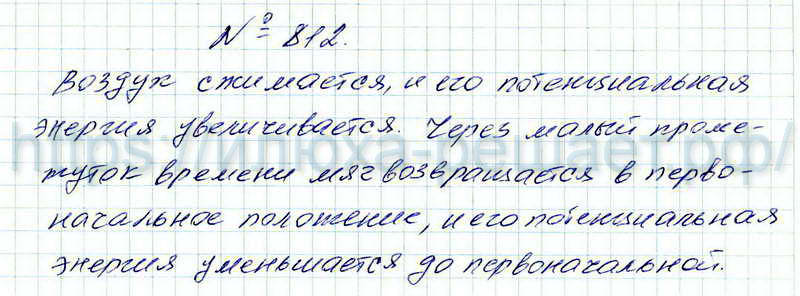 № 812.
Воздух сжимается, и его потенциальная
энергия увеличивается. Через малый проме-
жуток времени мяч возвращается в перво-
начальное положение, и его потенциальная
энергия уменьшается до первоначальной.